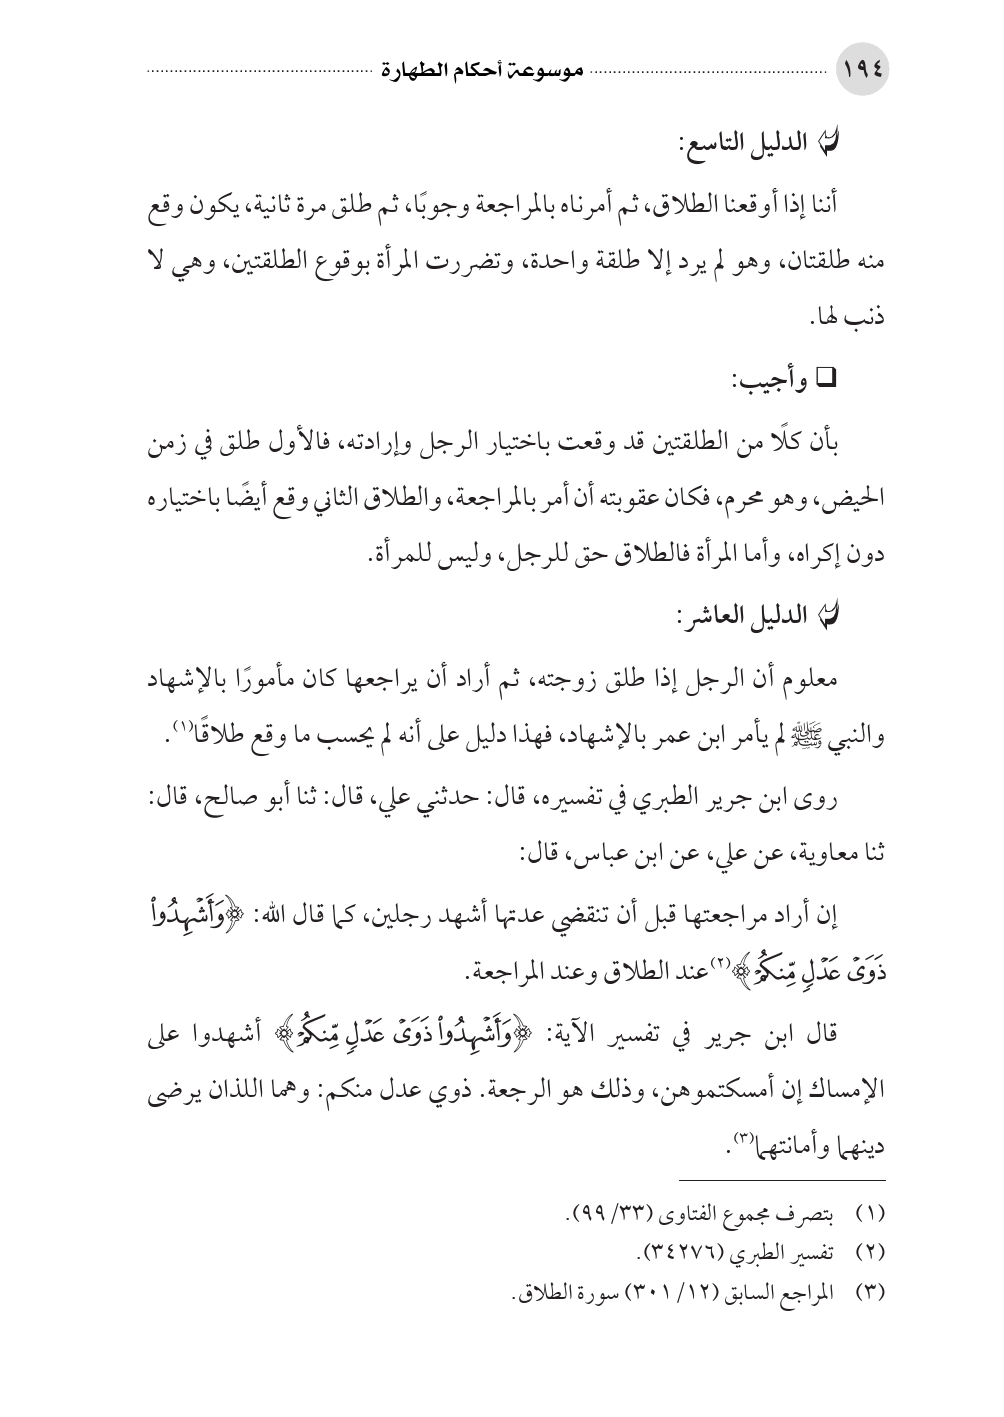 ١٩٤ موسوعة أحكام الطهارة
الدليل التاسع:
أننا إذا أوقعنا الطلاق، ثم أمرناه بالمراجعة وجوبًا، ثم طلق مرة ثانية، يكون وقع
منه طلقتان، وهو لم يرد إلا طلقة واحدة، وتضررت المرأة بوقوع الطلقتين، وهي لا
ذنب لها.
❑ وأجيب:
بأن كلًا من الطلقتين قد وقعت باختيار الرجل وإرادته، فالأول طلق في زمن
الحيض، وهو محرم، فكان عقوبته أن أمر بالمراجعة، والطلاق الثاني وقع أيضًا باختياره
دون إكراه، وأما المرأة فالطلاق حق للرجل، وليس للمرأة.
الدليل العاشر:
معلوم أن الرجل إذا طلق زوجته، ثم أراد أن يراجعها كان مأمورًا بالإشهاد
والنبي ﷺ لم يأمر ابن عمر بالإشهاد، فهذا دليل على أنه لم يحسب ما وقع طلاقًا(١).
روى ابن جرير الطبري في تفسيره، قال: حدثني علي، قال: ثنا أبو صالح، قال:
ثنا معاوية، عن علي، عن ابن عباس، قال:
إن أراد مراجعتها قبل أن تنقضي عدتها أشهد رجلين، كما قال الله: ﴿وَأَشْهِدُوا۟
ذَوَىْ عَدْلٍ مِّنكُمْ﴾(٢) عند الطلاق وعند المراجعة.
قال ابن جرير في تفسير الآية: ﴿وَأَشْهِدُوا۟ ذَوَىْ عَدْلٍ مِّنكُمْ﴾ أشهدوا على
الإمساك إن أمسكتموهن، وذلك هو الرجعة. ذوي عدل منكم: وهما اللذان يرضى
دينهما وأمانتهما(٣).
(١) بتصرف مجموع الفتاوى (٣٣/ ٩٩).
(٢) تفسير الطبري (٣٤٢٧٦).
(٣) المراجع السابق (١٢/ ٣٠١) سورة الطلاق.